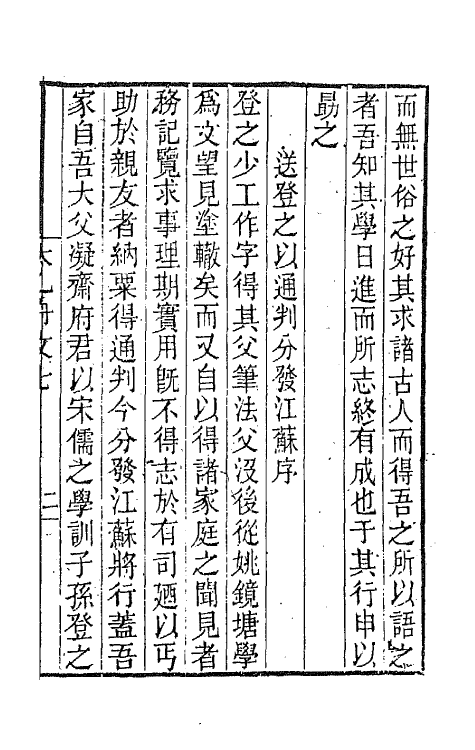 而無世俗之好其求諸古人而得吾之所以語之
者吾知其學日進而所志終有成也于其行申以
勗之
送登之以通判分發江蘇序
登之少工作字得其父筆法父沒後從姚鏡塘學
爲文望見塗轍矣而又自以得諸家庭之聞見者
務記覽求事理期實用旣不得志於有司廼以丐
助於親友者納粟得通判今分發江蘇將行蓋吾
家自吾大父凝齋府君以宋儒之學訓子孫登之
文七
二